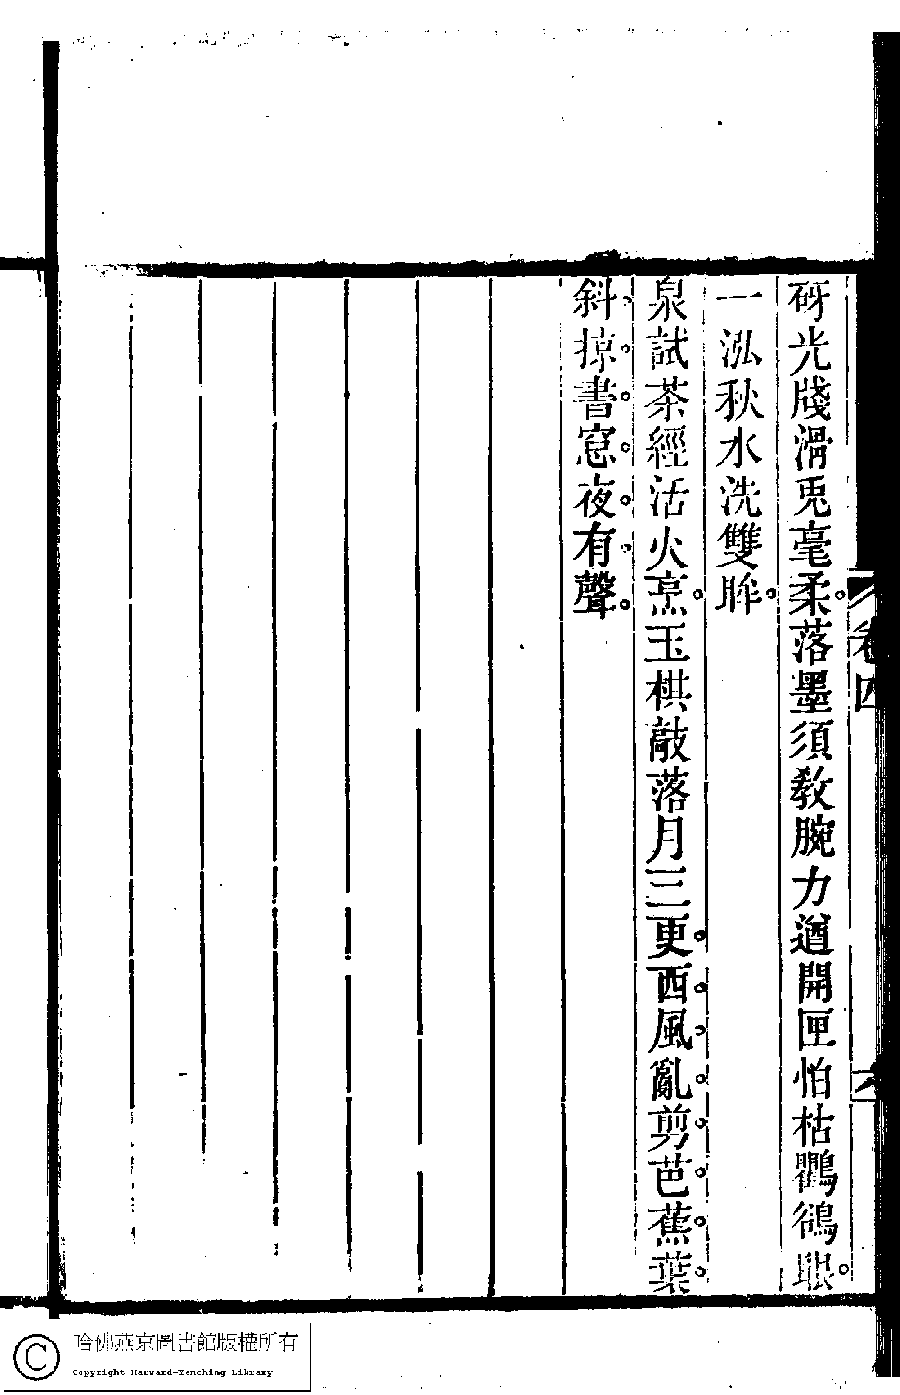 砑光牋滑兎毫柔。落墨須教腕力遒開匣怕枯鸜鵒眼。
一泓秋水洗雙眸。
泉試茶經活火烹。玉棋敲落月三更。西。風。亂。剪。芭。蕉。葉。
斜。掠。書。窓。夜。有。聲。
卷四
六
哈佛燕京圖書館版權所有
Copyright Harvard-Yenching Library